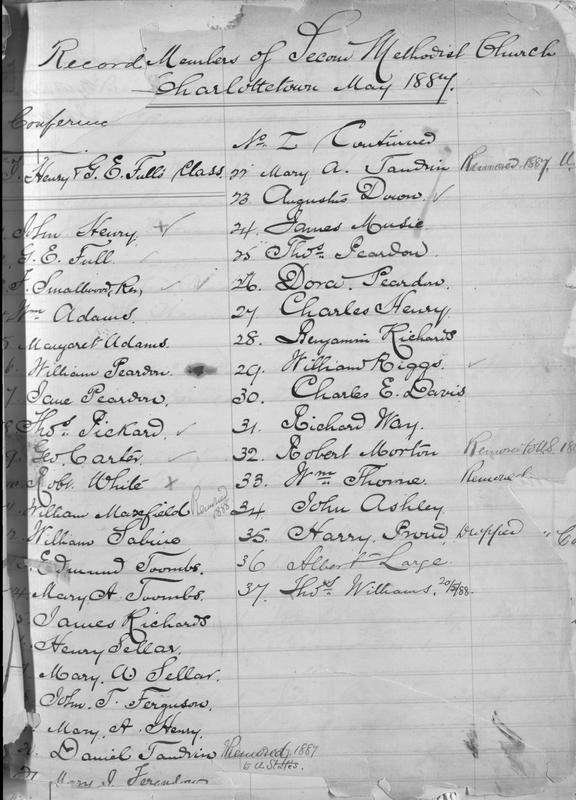 Record Members of Second Methodist Church
Charlottetown May 1887.
Conference
1. Henry & G. E. Full's Class.
John Henry
G. E. Full
F. Smallwood, Rev,
Wm Adams.
5 Margaret Adams.
6. William Peardon
7 Jane Peardon.
8 Thos. Pickard.
9. Geo. Carter.
Robt. White
William Maxfield Removed 1888
William Sabine
Edmund Toombs.
14 Mary A Toombs.
James Richards
Henry Sellar.
Mary. W Sellar.
John. T. Ferguson.
Mary. A. Henry.
Daniel Tandrin Removed 1887
to U. States.
21 Mary J. Ferguson
No. I Continued
22 Mary A. Tandrin Removed 1887. U.
23 Augustus Down.
24. James Musie
25 Thos. Peardon
26. Dora. Peardon.
27 Charles Henry.
28. Benjamin Richards
29. William Riggs
30. Charles E. Davis
31. Richard Way.
32. Robert Morton Removed to U.S. 188
33. Wm Thorne. Removed
34 John Ashley.
35. Harry. Proud, Dropped
36 Albert Large
37. Thos Williams. 20/5/88.